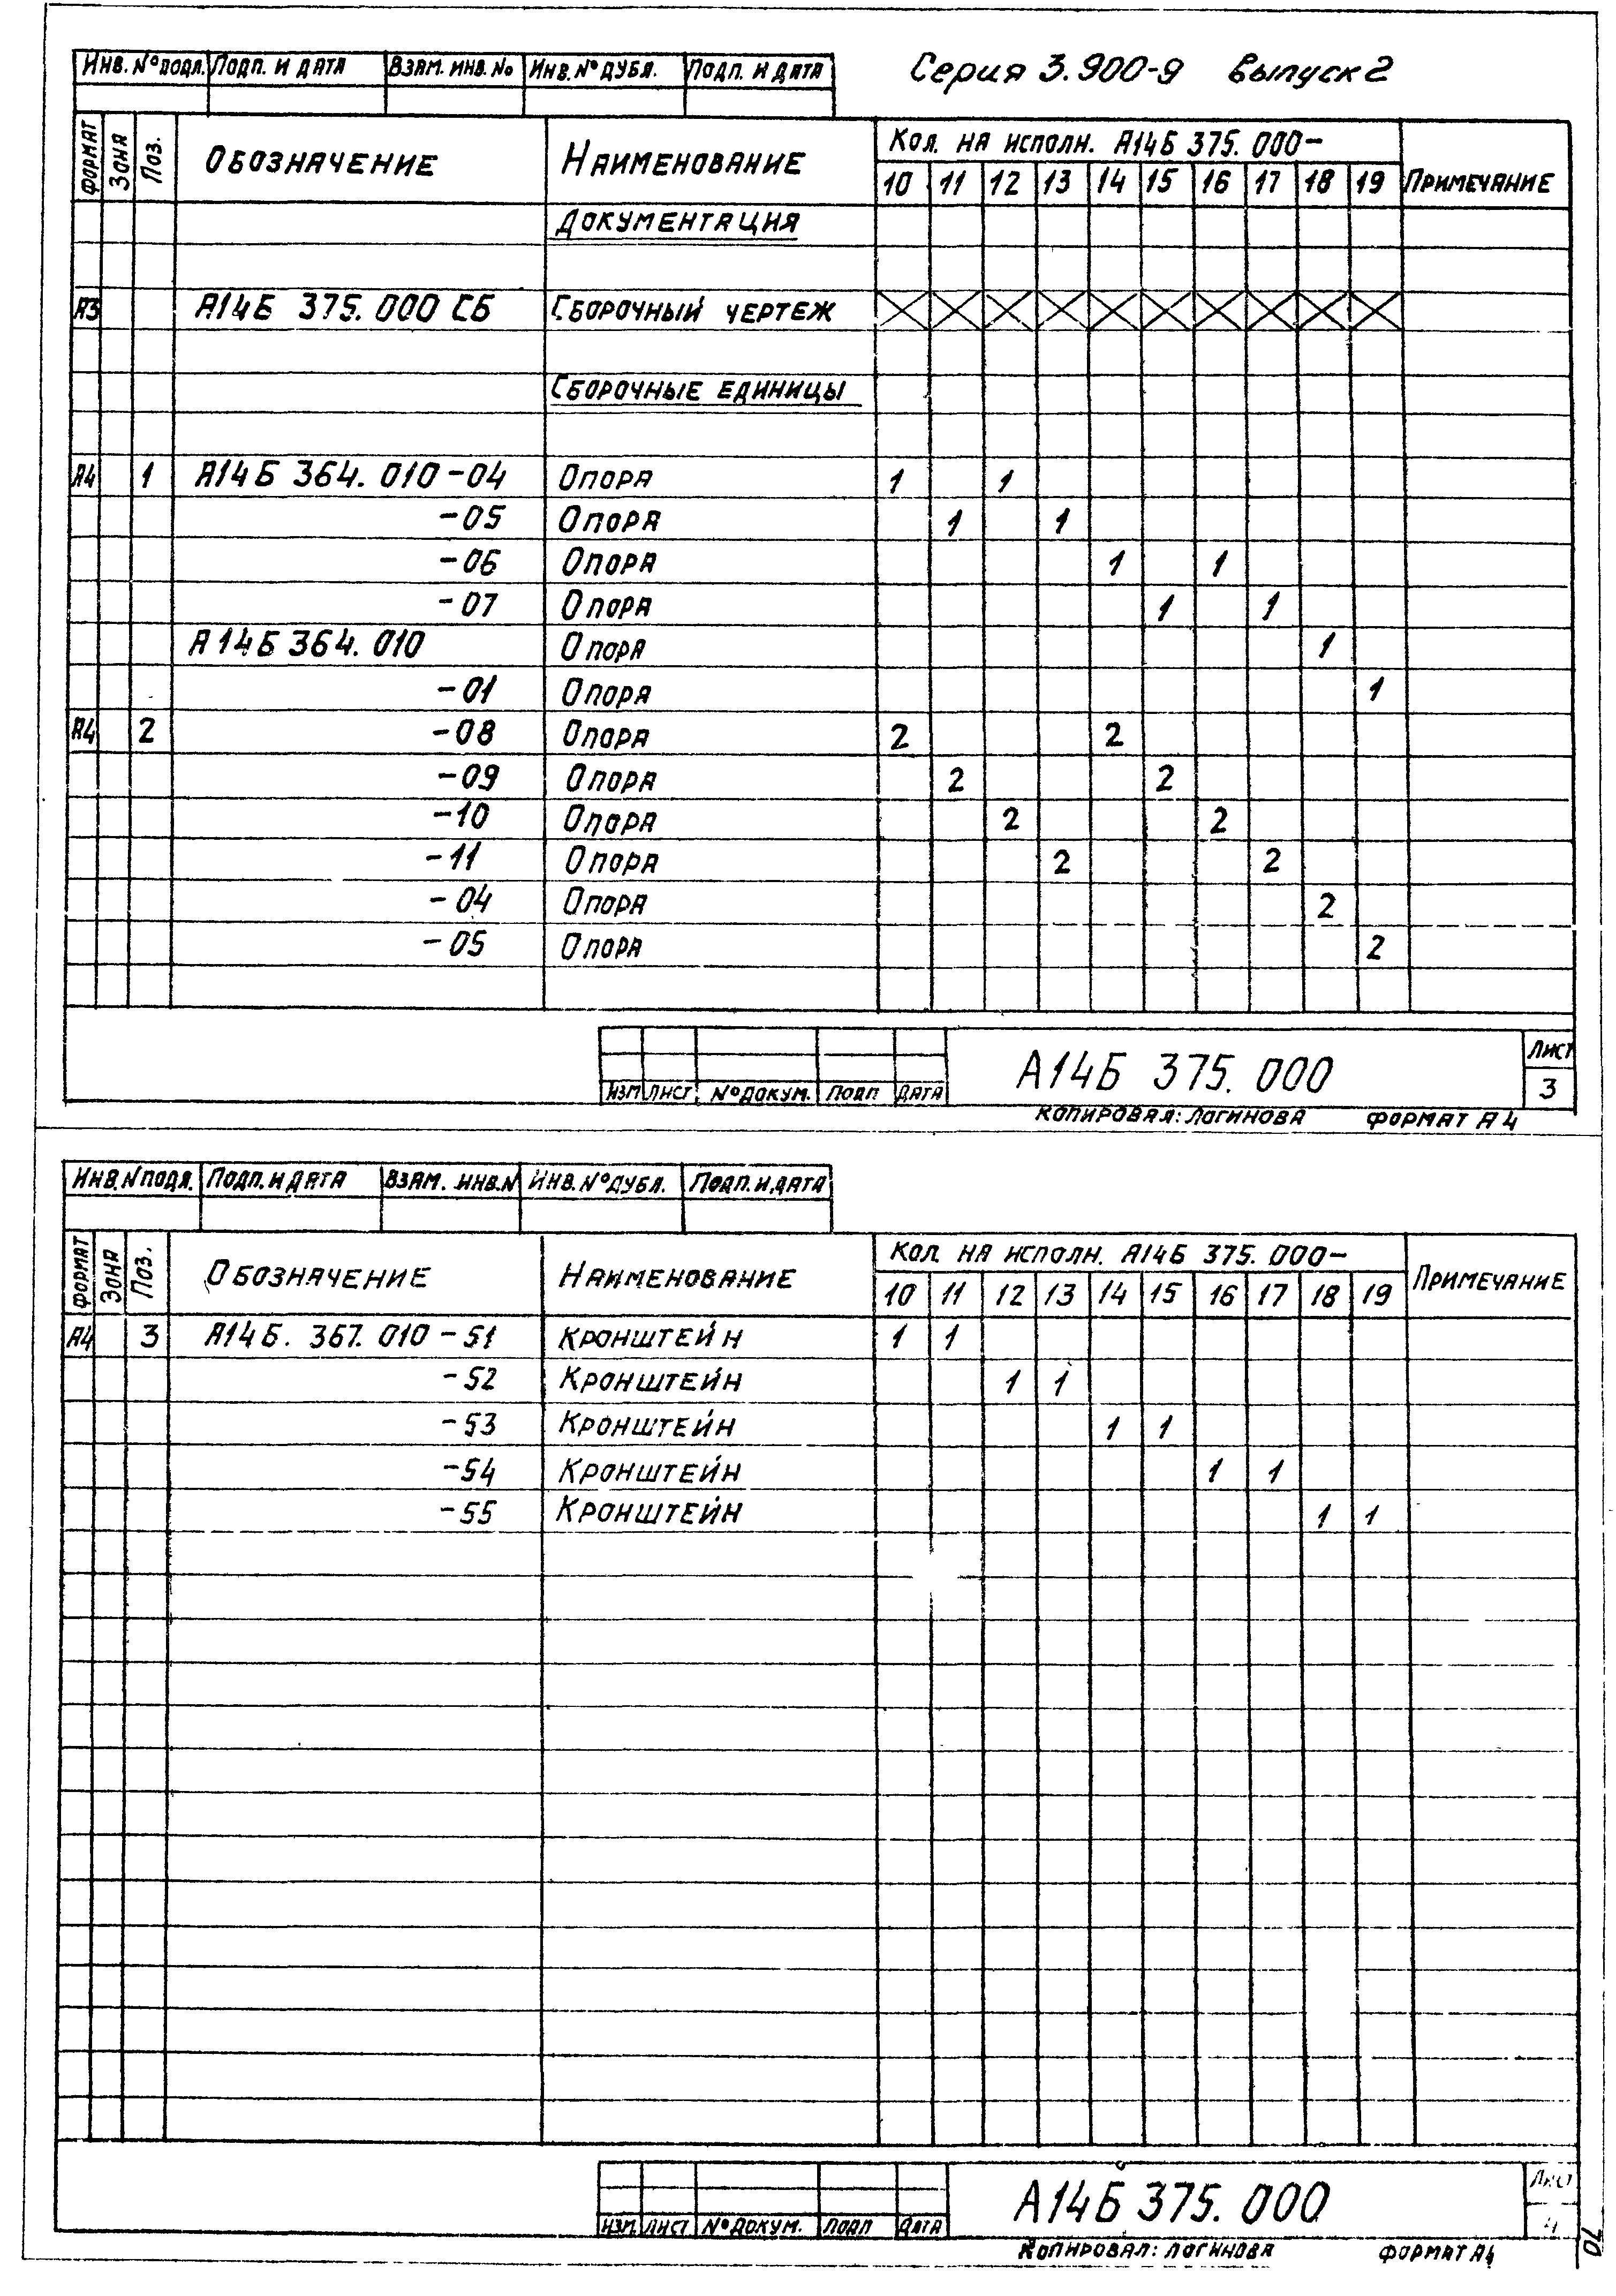 Серия 3.900-9 Выпуск 2
Инв. № подл. Подп. и дата Взам. инв. № Инв. № дубл. Подп. и дата
Формат Зона Поз. Обозначение Наименование Кол. на исполн. А14Б 375.000- Примечание
10 11 12 13 14 15 16 17 18 19
Документация
А3 А14Б 375.000 СБ Сборочный чертеж
Сборочные единицы
А4 1 А14Б 364.010-04 Опора 1 1
-05 Опора 1 1
-06 Опора 1 1
-07 Опора 1 1
А14Б 364.010 Опора 1
-01 Опора 1
А4 2 -08 Опора 2 2
-09 Опора 2 2
-10 Опора 2 2
-11 Опора 2 2
-04 Опора 2
-05 Опора 2
Изм Лист № докум. Подп Дата А14Б 375.000 Лист 3
Копировал: Логинова Формат А4
Инв. N подл. Подп. и дата Взам. инв. N Инв. № дубл. Подп. и дата
Формат Зона Поз. Обозначение Наименование Кол. на исполн. А14Б 375.000- Примечание
10 11 12 13 14 15 16 17 18 19
А4 3 А14Б. 367.010-51 Кронштейн 1 1
-52 Кронштейн 1 1
-53 Кронштейн 1 1
-54 Кронштейн 1 1
-55 Кронштейн 1 1
Изм Лист № докум. Подп Дата А14Б 375.000 Лист 4
Копировал: Логинова Формат А4
70